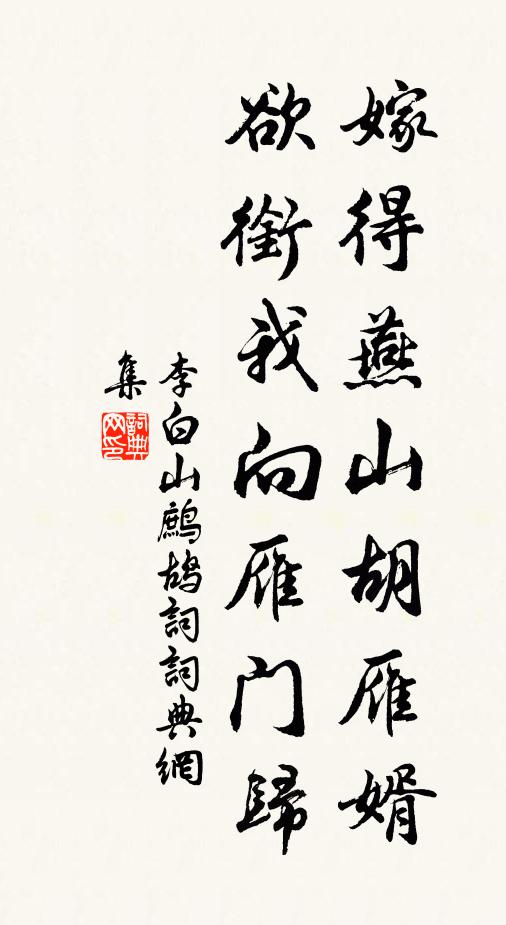 嫁得燕山胡雁婿
欲銜我向雁门歸
李白山鷓鴣詞詞典網
集
詞典
网印